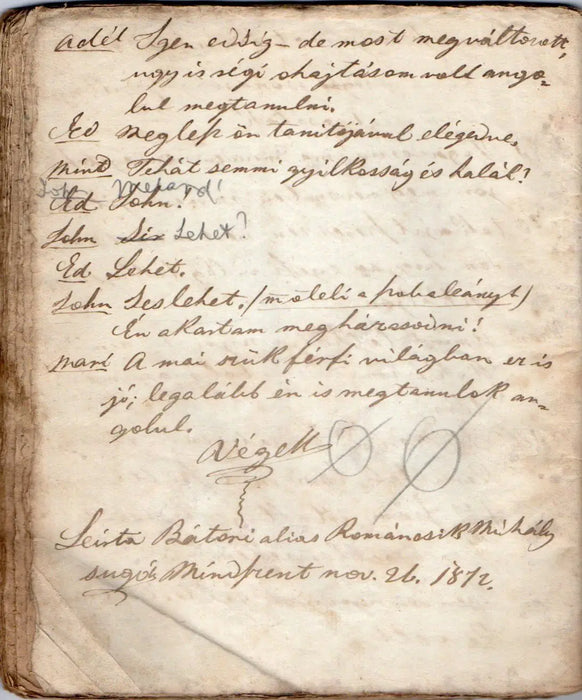 Adél Igen eddig - de most megváltozott,
ugy is régi ohajtásom volt ango=
lul megtanulni.
Ed ön tanitójával elégedve.
Mind Tehát semmi gyilkosság és halál?
Ed John!
John Lehet?
Ed Lehet.
John lehet. / a
Én akartam megházasodni!
Mari A mai szük férfi világban ez is
jó; legalább én is megtanulok an=
golul.
Vége
Leirta Bátori alias Románcsik Mihály
sugó Mindszent nov. 26. 1872.